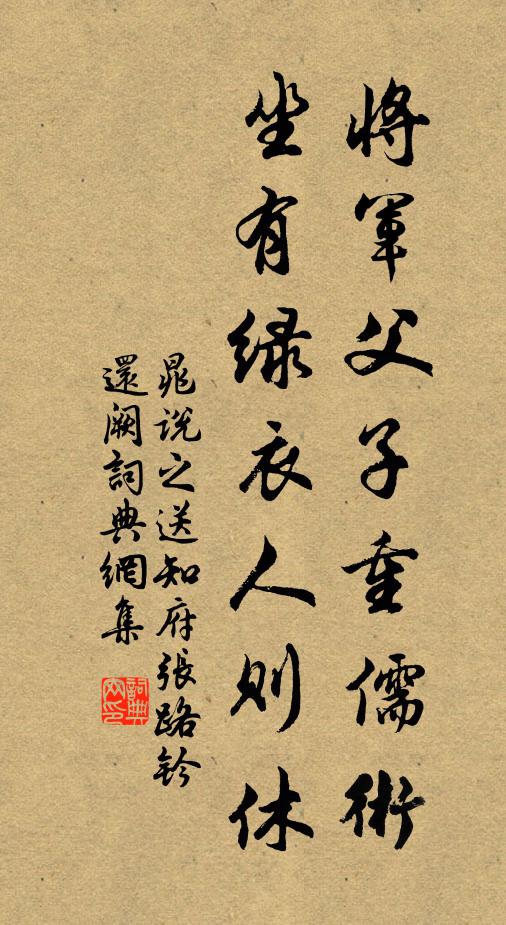 將軍父子重儒術
坐有緑衣人則休
晁説之送知府張路鈐
還闕詞典網集
詞典
网印